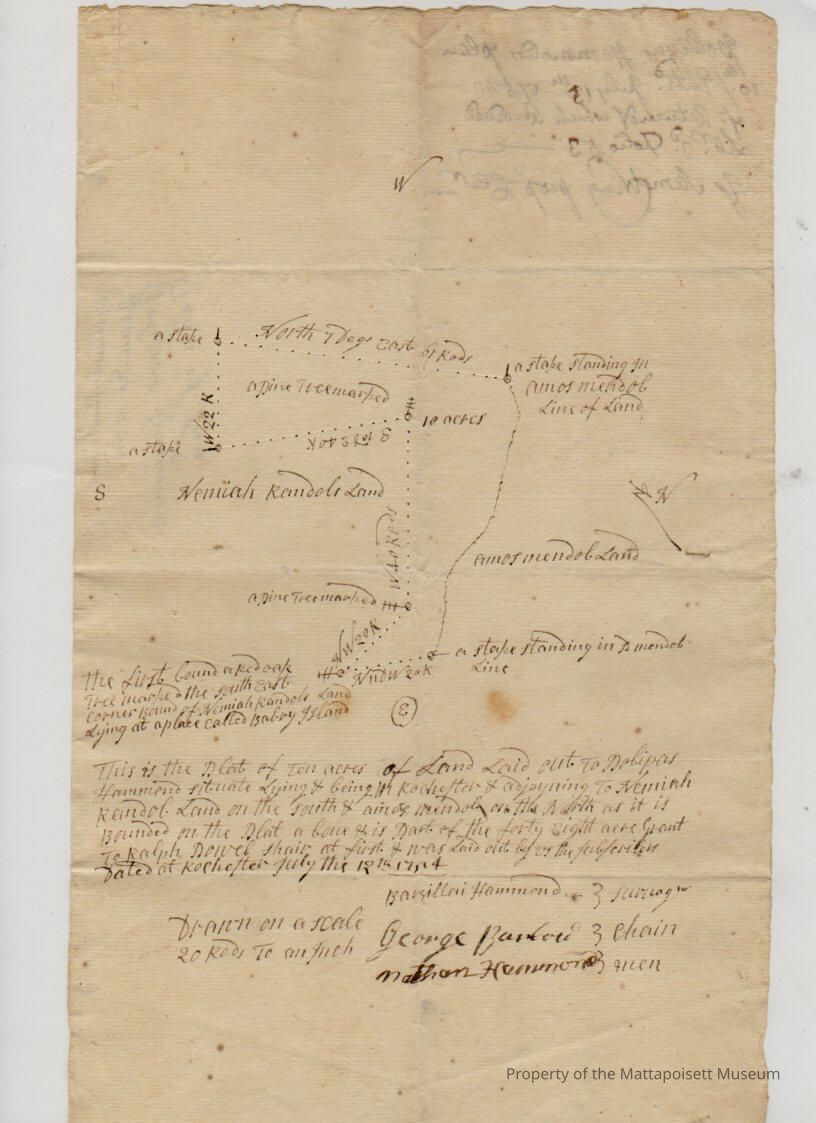 W
a stake
North 7 Degs East 61 Rods
a stake standing In
amos mendol
Line of Land
a pine Tree marked
10 acres
W 22 R
S E 40 R
a stake
S
Nemiah Randols Land
N
W 40 Rods
amos mendol Land
a pine Tree marked
NW 20 R
a stake standing in D mendol
Line
NNW 20 R
the first bound a Red oak
Tree marked the south East
corner bound of Nemiah Randols Land
Lying at a place called Babry Island
This is the Plat of Ten acres of Land Laid out To Polipas
Hammond situate Lying & being In Rochester & adjoyning To Nemiah
Randol Land on the south & amos mendol on the North as it is
Bounded on the Plat a bove & is Part of the forty Eight acre Grant
To Ralph Powel shair at first & was Laid out by us the subscribers
Dated at Rochester July the 12th 1754
Barzillai Hammond survayr
Drawn on a scale
20 Rods To an Inch
George Barlow chain
Nathan Hammond men
Property of the Mattapoisett Museum